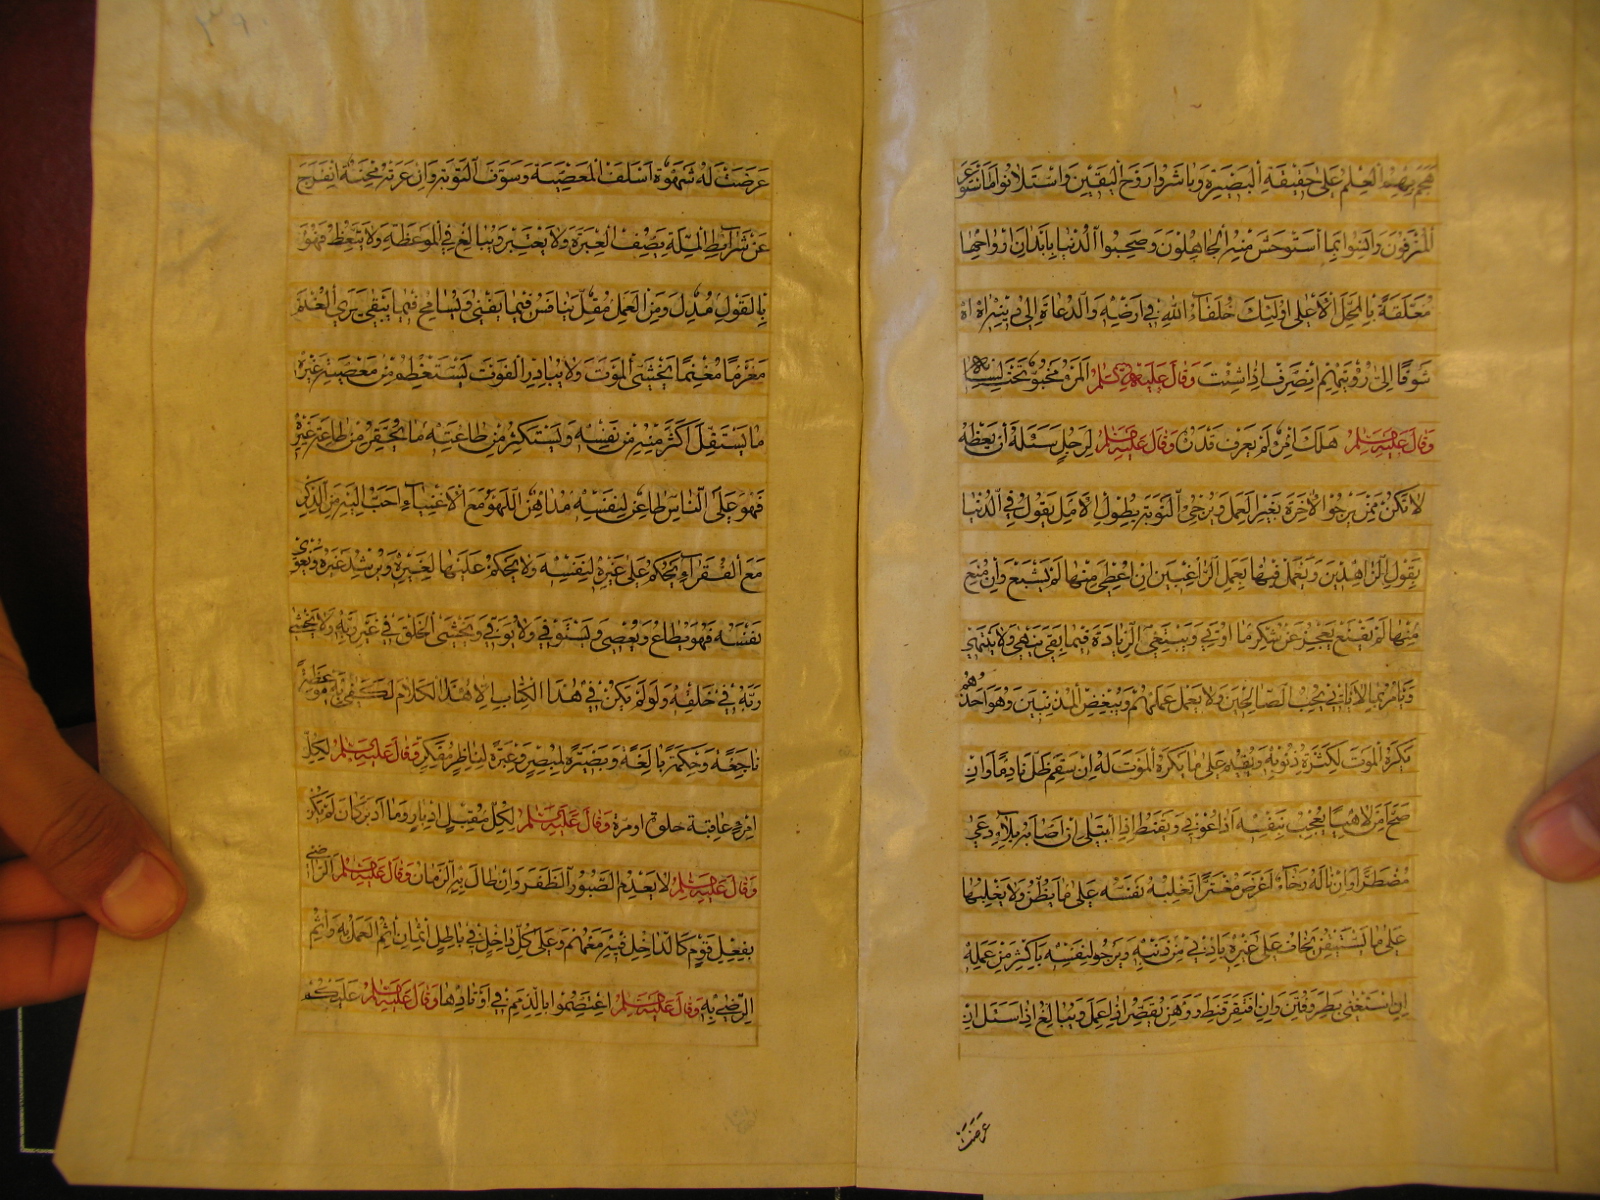 هجم بهم العلم على حقيقة البصيرة وباشروا روح اليقين واستلانوا ما استوعر
المترفون وانسوا بما استوحش منه الجاهلون وصحبوا الدنيا بابدان ارواحها
معلقة بالمحل الاعلى اولئك خلفاء الله في ارضه والدعاة الى دينه اه اه
شوقا الى رؤيتهم انصرف اذا شئت وقال عليه السلم المرء مخبو تحت لسانه
وقال عليه السلم هلك امرء لم يعرف قدره وقال عليه السلم لرجل سئله ان يعظه
لا تكن ممن يرجوا الاخرة بغير العمل ويرجى التوبة بطول الامل يقول في الدنيا
بقول الزاهدين ويعمل فيها بعمل الراغبين ان اعطى منها لم يشبع وان منع
منها لم يقنع يعجز عن شكر ما اوتي ويبتغى الزيادة فيما بقي ينهى ولا ينتهي
ويامر بما لا ياتي يحب الصالحين ولا يعمل عملهم ويبغض المذنبين وهو احدهم
يكره الموت لكثرة ذنوبه ويقيم على ما يكره الموت له ان سقم ظل نادما وان
صح امن لاهيا يعجب بنفسه اذا عوفي ويقنط اذا ابتلى ان اصابه بلاء دعى
مضطرا وان ناله رخاء اعرض مغترا تغلبه نفسه على ما يظن ولا يغلبها
على ما يستيقن يخاف على غيره بادنى من ذنبه ويرجو لنفسه باكثر من عمله
ان استغنى بطر وفتن وان افتقر قنط ووهن يقصر اذا عمل ويبالغ اذا سئل ان
عرضت
عرضت له شهوة اسلف المعصية وسوف التوبة وان عرته محنة انفرج
عن شرايط الملة يصف العبرة ولا يعتبر ويبالغ في الموعظة ولا يتعظ فهو
بالقول مدل ومن العمل مقل ينافس فيما يفنى ويسامح فيما يبقى يرى الغنم
مغرما مغنما يخشى الموت ولا يبادر الفوت يستعظم من معصية غيره
ما يستقل اكثر منه من نفسه ويستكثر من طاعته ما يحقره من طاعة غيره
فهو على الناس طاعن لنفسه مداهن اللهو مع الاغنياء احب اليه من الذكر
مع الفقراء يحكم على غيره لنفسه ولا يحكم عليها لغيره ويرشد غيره ويغوي
نفسه فهو يطاع ويعصى ويستوفي ولا يوفي ويخشى الخلق في غير ربه ولا يخشى
ربه في خلقه ولو لم يكن في هذا الكتاب الا هذا الكلام لكفى به موعظة
ناجعة وحكمة بالغة وبصيرة لمبصر وعبرة لناظر مفكر وقال عليه السلم لكل
امرء عاقبة حلوة او مرة وقال عليه السلم لكل مقبل ادبار وما ادبر كان لم يكن
وقال عليه السلم لا يعدم الصبور الظفر وان طال به الزمان وقال عليه السلم الراضي
بفعل قوم كالداخل فيه معهم وعلى كل داخل في باطل اثمان اثم العمل به واثم
الرضى به وقال عليه السلم اعتصموا بالذمم في اوتادها وقال عليه السلم عليكم